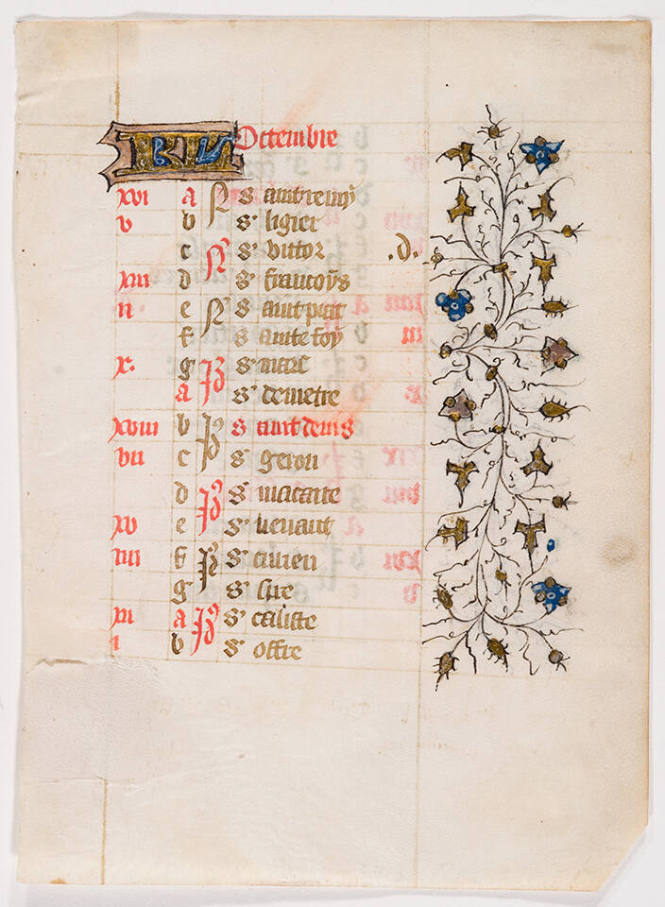 KL Octembre
xvi a N S. aint remy
v b s' ligier
c N' s' victor .d.
xiii d s' francoys
ii. e N S. aint put
f S. ainte foy
x. g s' marc
a Id' s' demetre
xviii b Id' S. aint denis
vii c s' geron
d Id' s' macaire
xv e s' venant
iiii f Id' s' aurien
g s' lire
xii a Id' s' caliste
i b s' offre